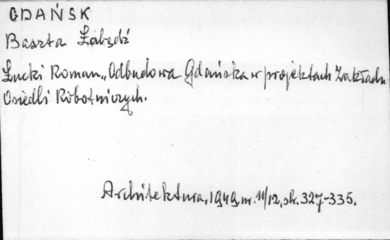 GDAŃSK
Baszta Łabędź
Łucki Roman „Odbudowa Gdańska w projektach Zakładu
Osiedli Robotniczych.
Architektura, 1949, nr. 11/12, str. 327-335.